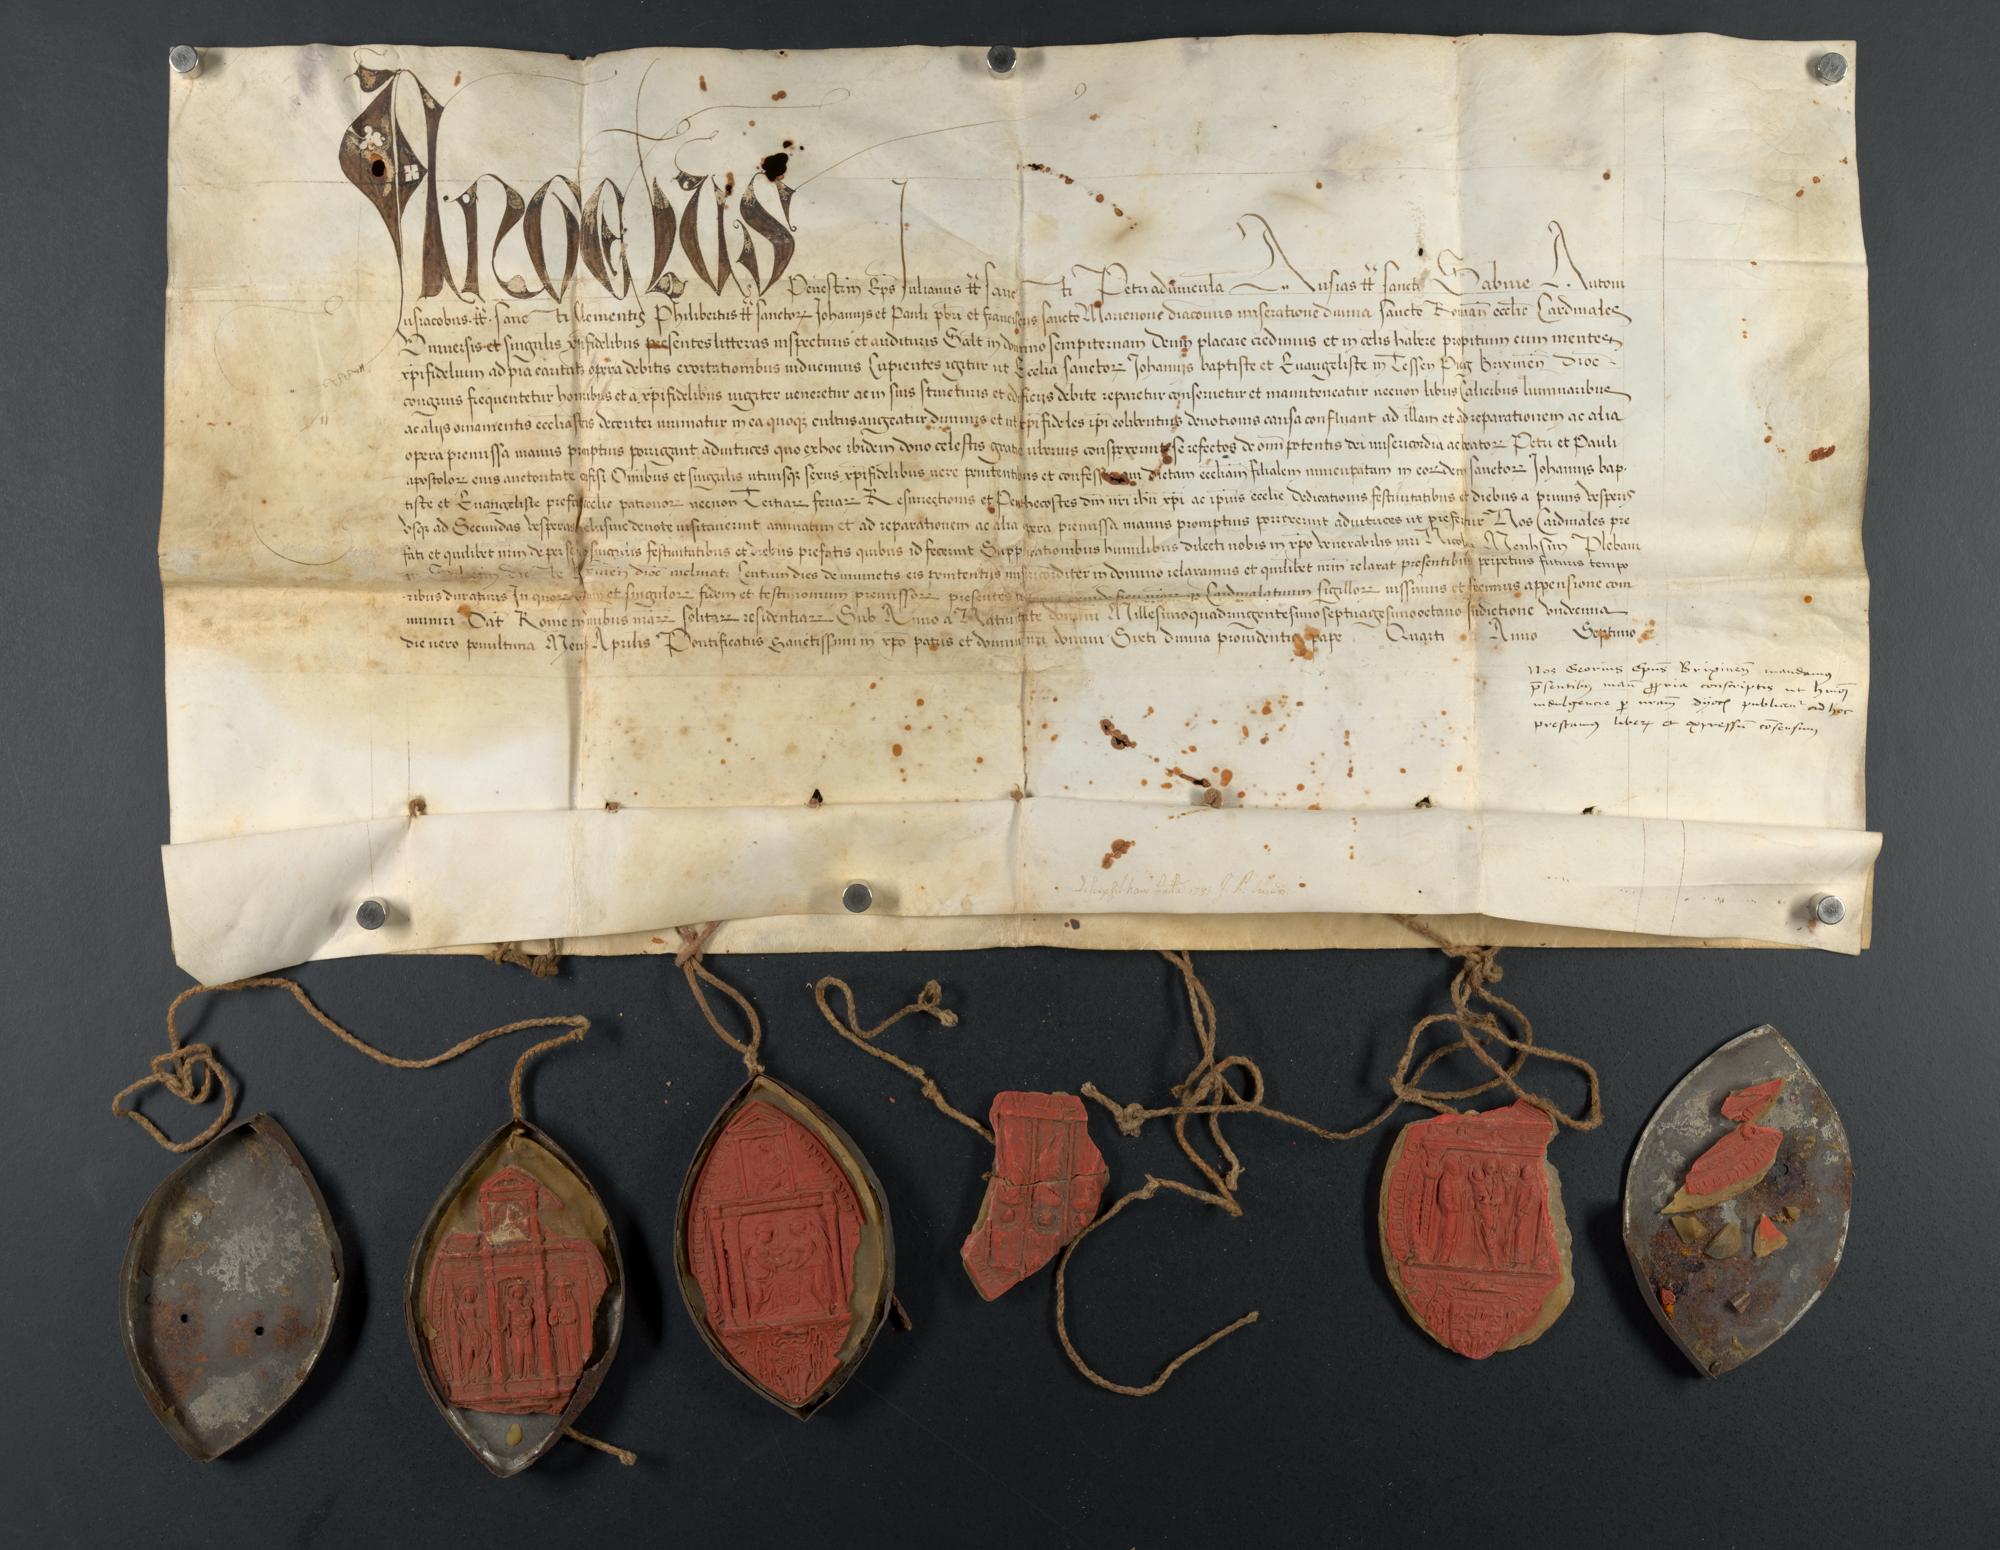 Angelus
Penestrin Eps Iulianus tt sanc ti Petri ad uincula Ausias tt sancte Sabine Antoni
usiacobus tt sanc ti Clementis Philibertus tt sanctor Johannis et Pauli pbri et franciscus sancte Marienoue diaconus miseratione diuina sancte Roman ecclie Cardinales
Vniuersis et singulis xpifidelibus presentes litteras inspecturis et audituris Salt in domino sempiternam Deum placare credimus et in celis habere propitium cum mentes
xpifidelium ad pia caritatis opera debitis exortationibus inducimus Cupientes igitur ut Ecclia sanctor Johannis baptiste et Euangeliste in Tessen Brixinen dioc
congruis frequentetur honoribus et a xpifidelibus iugiter ueneretur ac in suis structuris et edificijs debite reparetur conseruetur et manuteneatur necnon libris Calicibus luminaribus
ac alijs ornamentis ecclesiasticis decenter muniatur in ea quoqz cultus augeatur diuinus et ut xpifideles ipi eolibentius deuotionis causa confluant ad illam et ad reparationem ac alia
opera premissa manus promptius porrigant adiutrices quo ex hoc ibidem dono celestis gratie uberius conspexerint se refectos de omipotentis dei misericordia ac beator Petri et Pauli
apostolor eius auctoritate cofisi Omibus et singulis utriusqz sexus xpifidelibus uere penitentibus et confessis qui dictam eccliam filialem nuncupatam in eordem sanctor Johannis bap
tiste et Euangeliste prefate ecclie patronor necnon Tertiar feriar Resurrectionis et Penthecostes dni nri ihu xpi ac ipius ecclie dedicationis festiuitatibus et diebus a primis vesperis
vsqz ad Secundas vesperas deuote uisitauerint annuatim et ad reparationem ac alia opera premissa manus promptius porrexerint adiutrices ut prefertur Nos Cardinales pre
fati et quilibet nrm de per se singulis festiuitatibus et diebus prefatis quibus id fecerint Supplicationibus humilibus dilecti nobis in xpo venerabilis uiri Nicolai Menhsin Plebani
dioc inclinati Centum dies de iniunctis eis penitentijs misericorditer in domino relaxamus et quilibet nrm relaxat presentibus perpetuis futuris tempo
ribus duraturis In quor omium et singulor fidem et testimonium premissor presentes Cardinalatuum sigillor iussimus et fecimus appensione com
muniri Dat Rome in edibus nrar solitar residentiar Sub Anno a Natiuitate domini Millesimoquadringentesimoseptuagesimooctauo Indictione vndecima
die uero penultima Mens Aprilis Pontificatus Sanctissimi in xpo patris et domini nri domini Sixti diuina prouidentia pape Quarti Anno Septimo
Nos Georius Epus Brixinen mandamus
psentibus manu ppria conscriptis ut huiq
indulgencie p nram dyoc publicent ad hoc
prestamus liberu et expressu consensum